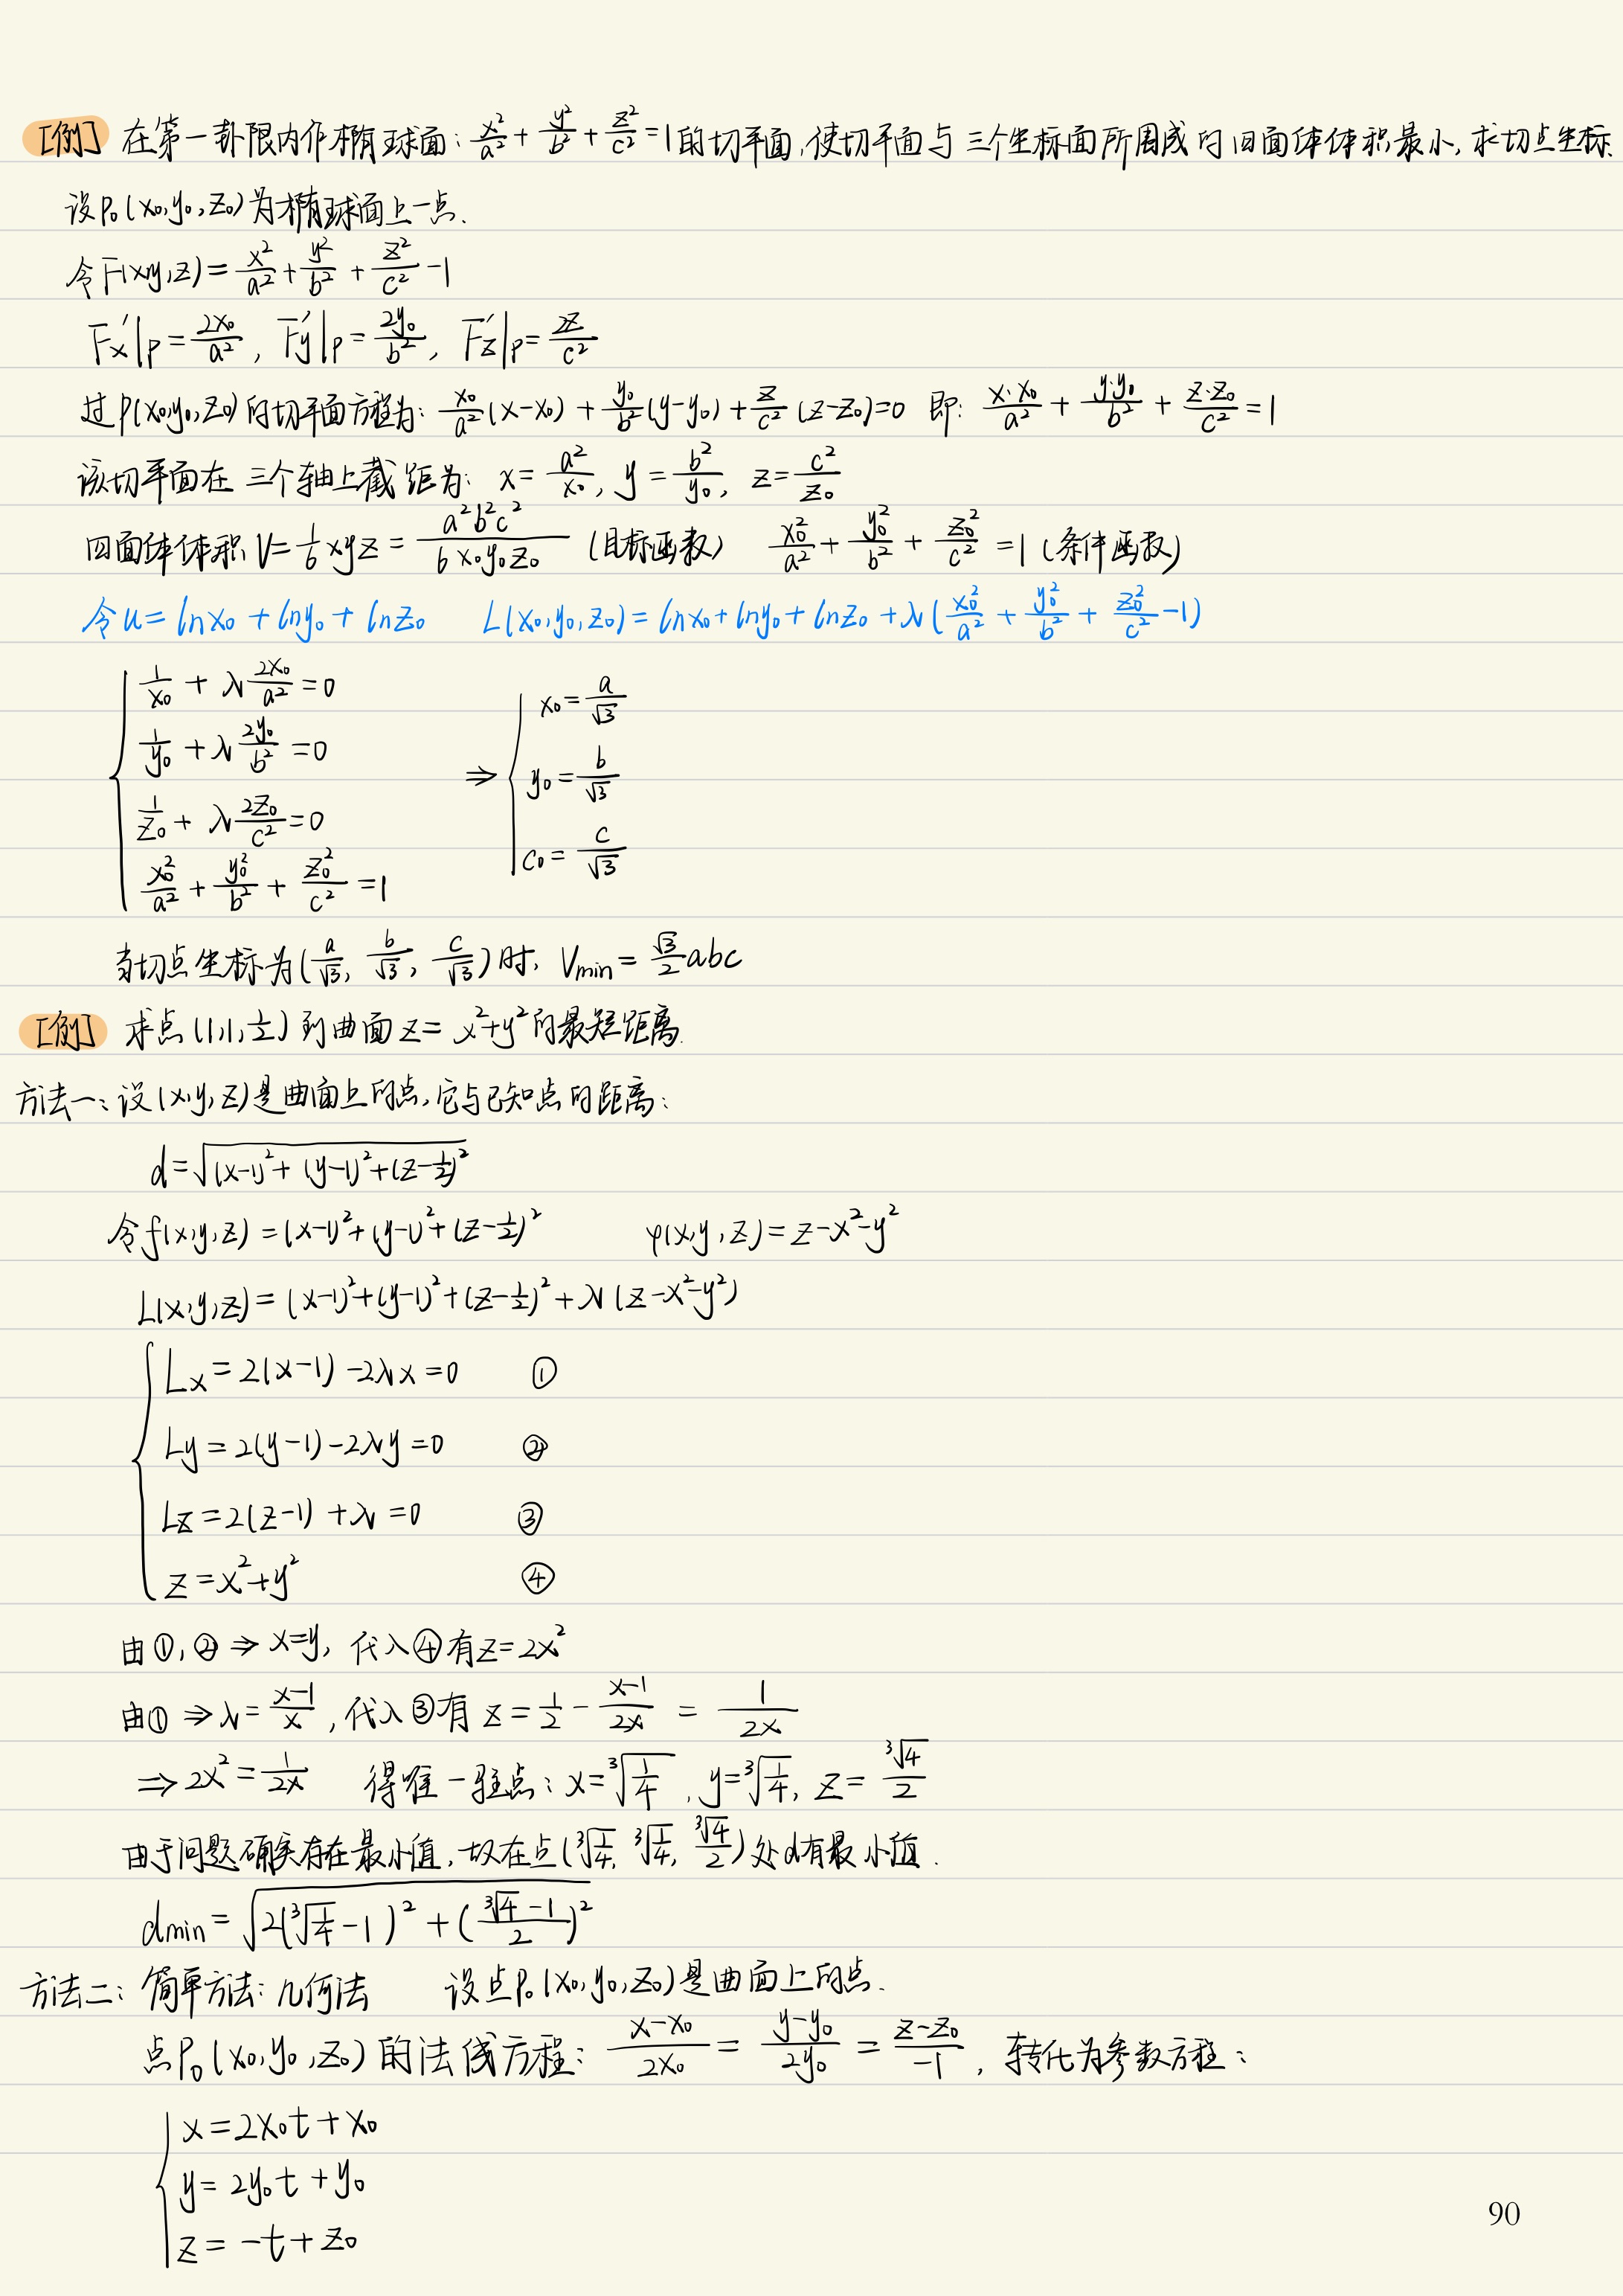 [例] 在第一卦限内作椭球面: x²/a² + y²/b² + z²/c² = 1 的切平面, 使切平面与三个坐标面所围成的四面体体积最小, 求切点坐标.
设P₀(x₀,y₀,z₀)为椭球面上一点.
令F(x,y,z) = x²/a² + y²/b² + z²/c² - 1
Fx'|p = 2x₀/a², Fy'|p = 2y₀/b², Fz'|p = 2z/c²
过P(x₀,y₀,z₀)的切平面方程为: x₀/a²(x-x₀) + y₀/b²(y-y₀) + z/c²(z-z₀) = 0 即: x·x₀/a² + y·y₀/b² + z·z₀/c² = 1
该切平面在三个轴上截距为: x = a²/x₀, y = b²/y₀, z = c²/z₀
四面体体积V = 1/6 xyz = a²b²c²/(6x₀y₀z₀) (目标函数) x₀²/a² + y₀²/b² + z₀²/c² = 1 (条件函数)
令u = lnx₀ + lny₀ + lnz₀ L(x₀,y₀,z₀) = lnx₀ + lny₀ + lnz₀ + λ(x₀²/a² + y₀²/b² + z₀²/c² - 1)
{ 1/x₀ + λ 2x₀/a² = 0
1/y₀ + λ 2y₀/b² = 0
1/z₀ + λ 2z₀/c² = 0
x₀²/a² + y₀²/b² + z₀²/c² = 1
⇒ { x₀ = a/√3
y₀ = b/√3
c₀ = c/√3
当切点坐标为(a/√3, b/√3, c/√3)时, Vmin = √3/2 abc
[例] 求点(1,1,1/2)到曲面z = x²+y²的最短距离.
方法一: 设(x,y,z)是曲面上的点, 它与已知点的距离:
d = √((x-1)² + (y-1)² + (z-1/2)²)
令f(x,y,z) = (x-1)² + (y-1)² + (z-1/2)² φ(x,y,z) = z-x²-y²
L(x,y,z) = (x-1)² + (y-1)² + (z-1/2)² + λ(z-x²-y²)
{ Lx = 2(x-1) - 2λx = 0 ①
Ly = 2(y-1) - 2λy = 0 ②
Lz = 2(z-1) + λ = 0 ③
z = x²+y² ④
由①,② ⇒ x=y, 代入④有z = 2x²
由① ⇒ λ = (x-1)/x, 代入③有 z = 1/2 - (x-1)/2x = 1/2x
⇒ 2x² = 1/2x 得唯一驻点: x = ³√(1/4), y = ³√(1/4), z = ³√4/2
由于问题确实存在最小值, 故在点(³√(1/4), ³√(1/4), ³√4/2)处d有最小值.
dmin = √(2(³√(1/4) - 1)² + ((³√4 - 1)/2)²)
方法二: 简单方法: 几何法 设点P₀(x₀,y₀,z₀)是曲面上的点.
点P₀(x₀,y₀,z₀)的法线方程: (x-x₀)/2x₀ = (y-y₀)/2y₀ = (z-z₀)/-1, 转化为参数方程:
{ x = 2x₀t + x₀
y = 2y₀t + y₀
z = -t + z₀
90